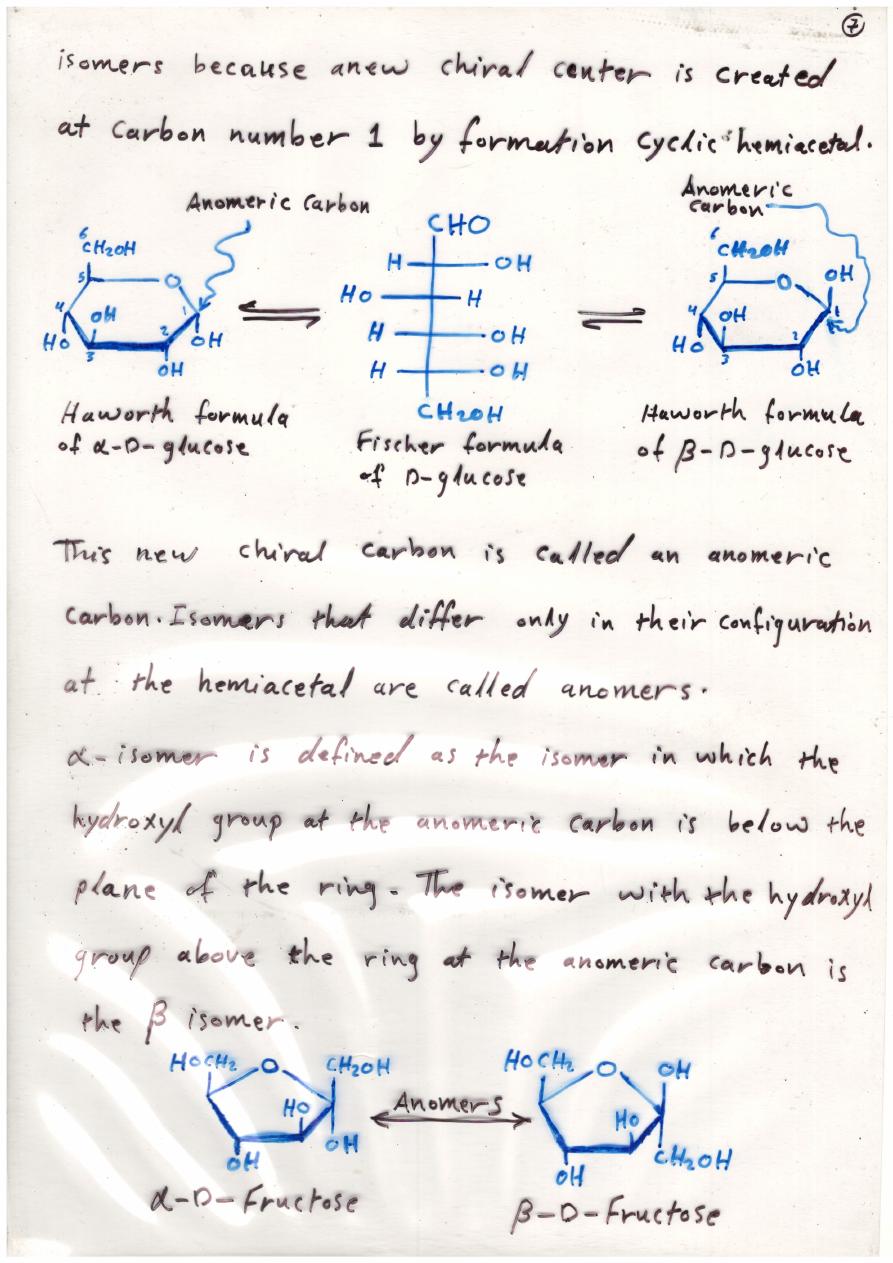 7
isomers because anew chiral center is created
at carbon number 1 by formation cyclic hemiacetal.
Anomeric carbon
Anomeric
carbon
6
CH2OH
5
O
4
OH
1
2
HO
3
OH
OH
CHO
H OH
HO H
H OH
H OH
CH2OH
6
CH2OH
OH
5
O
4
OH
1
2
HO
3
OH
Haworth formula
of α-D-glucose
Fischer formula
of D-glucose
Haworth formula
of β-D-glucose
This new chiral carbon is called an anomeric
carbon. Isomers that differ only in their configuration
at the hemiacetal are called anomers.
α-isomer is defined as the isomer in which the
hydroxyl group at the anomeric carbon is below the
plane of the ring. The isomer with the hydroxyl
group above the ring at the anomeric carbon is
the β isomer.
HOCH2 O CH2OH
HO
OH
OH
Anomers
HOCH2 O OH
HO
CH2OH
OH
α-D-Fructose
β-D-Fructose